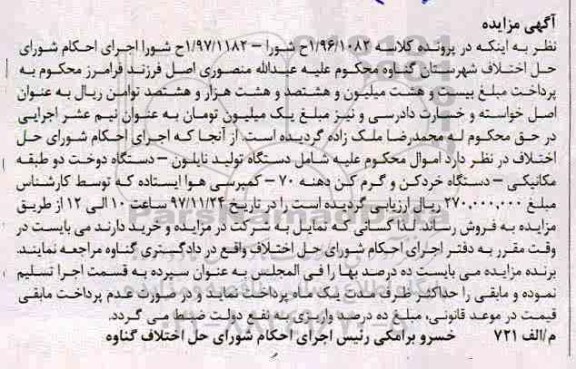 آگهی مزایده
نظر به اینکه در پرونده کلاسه ۱/۹۶/۱۰۸۲ح شورا – ۱/۹۷/۱۱۸۲ح شورا اجرای احکام شورای
حل اختلاف شهرستان گناوه محکوم علیه عبدالله منصوری اصل فرزند فرامرز محکوم به
پرداخت مبلغ بیست و هشت میلیون و هشتصد و هشت هزار و هشتصد تو‌امن ریال به عنوان
اصل خواسته و خسارت دادرسی و نیز مبلغ یک میلیون تومان به عنوان نیم عشر اجرایی
در حق محکوم له محمدرضا ملک زاده گردیده است. از آنجا که اجرای احکام شورای حل
اختلاف در نظر دارد اموال محکوم علیه شامل دستگاه تولید نایلون – دستگاه دوخت دو طبقه
مکانیکی – دستگاه خردکن و گرم کن دهنه ۷۰ – کمپرسی هوا ایستاده که توسط کارشناس
مبلغ ۲۷۰,۰۰۰,۰۰۰ ریال ارزیابی گردیده است را در تاریخ ۹۷/۱۱/۲۴ ساعت ۱۰ الی ۱۲ از طریق
مزایده به فروش رساند. لذا کسانی که تمایل به شرکت در مزایده و خرید دارند می بایست در
وقت مقرر به دفتر اجرای احکام شورای حل اختلاف واقع در دادگستری گناوه مراجعه نمایند.
برنده مزایده می بایست ده درصد بها را فی المجلس به عنوان سپرده به قسمت اجرا تسلیم
نموده و مابقی را حداکثر ظرف مدت یک ماه پرداخت نماید و در صورت عدم پرداخت مابقی
قیمت در موعد قانونی، مبلغ ده درصد واریزی به نفع دولت ضبط می گردد.
م/الف ۷۲۱ خسرو برامکی رئیس اجرای احکام شورای حل اختلاف گناوه